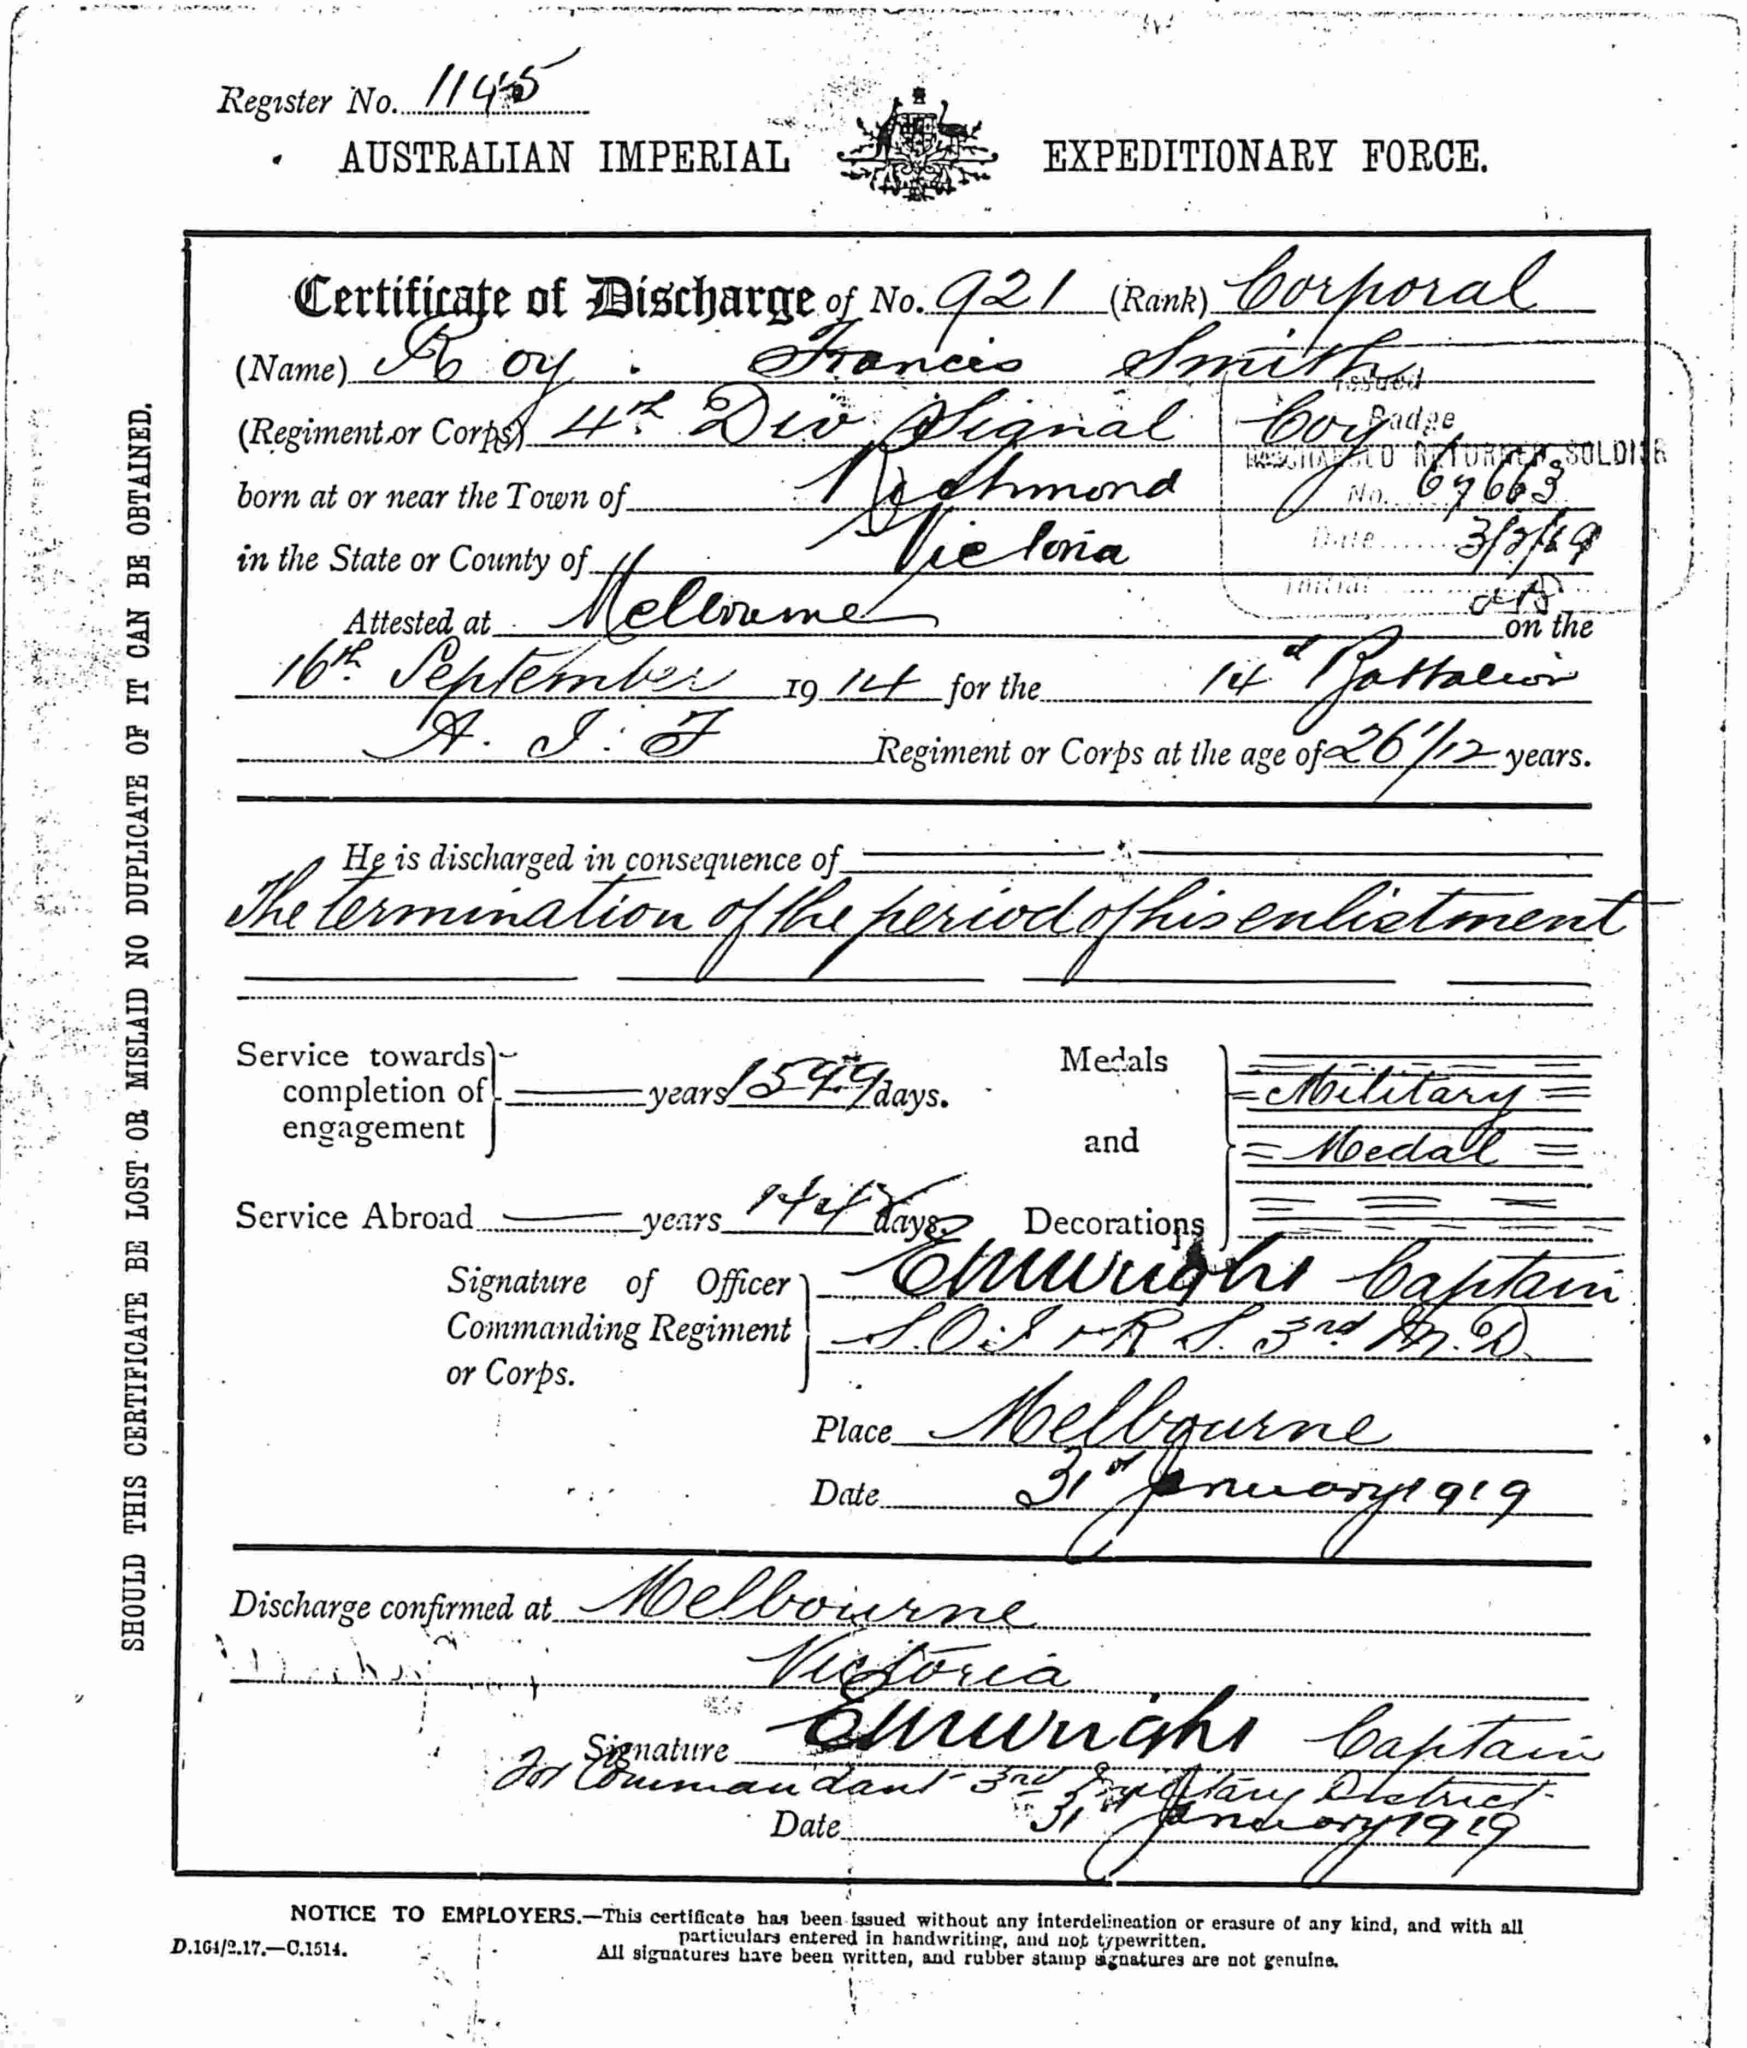 Register No. 1145
AUSTRALIAN IMPERIAL EXPEDITIONARY FORCE.
Certificate of Discharge of No. 921 (Rank) Corporal
(Name) Roy Francis Smith
(Regiment or Corps) 4th Div Signal Coy
born at or near the Town of Richmond
in the State or County of Victoria
Issued
Badge
DISCHARGED RETURNED SOLDIER
No. 67663
Date 3/2/19
Initial
Attested at Melbourne on the
16th September 1914 for the 14th Battalion
A. I. F Regiment or Corps at the age of 26 1/12 years.
He is discharged in consequence of
The termination of the period of his enlistment
Service towards completion of engagement years 1599 days.
Service Abroad years days.
Medals and Decorations Military Medal
Signature of Officer Commanding Regiment or Corps. Captain
3rd M.D.
Place Melbourne
Date 31st January 1919
Discharge confirmed at Melbourne
Victoria
Signature Captain
for Commandant 3rd Military District
Date 31st January 1919
SHOULD THIS CERTIFICATE BE LOST OR MISLAID NO DUPLICATE OF IT CAN BE OBTAINED.
NOTICE TO EMPLOYERS.—This certificate has been issued without any interdelineation or erasure of any kind, and with all
particulars entered in handwriting, and not typewritten.
All signatures have been written, and rubber stamp signatures are not genuine.
D.164/2.17.—C.1514.